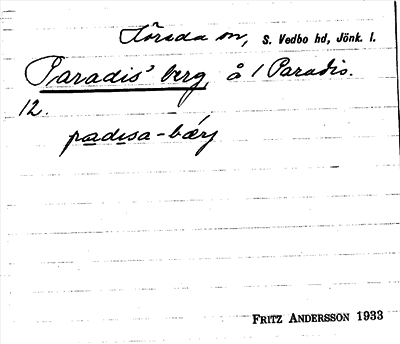 Flisada sn, S. Vedbo hd, Jönk. l.
Paradis' berg, å 1 Paradis.
12.
padisa-bærj
FRITZ ANDERSSON 1933